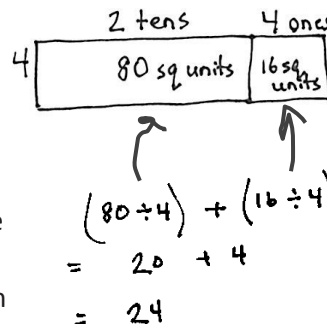 2 tens 4 ones
4 80 sq units 16 sq
units
(80 ÷ 4) + (16 ÷ 4)
= 20 + 4
= 24